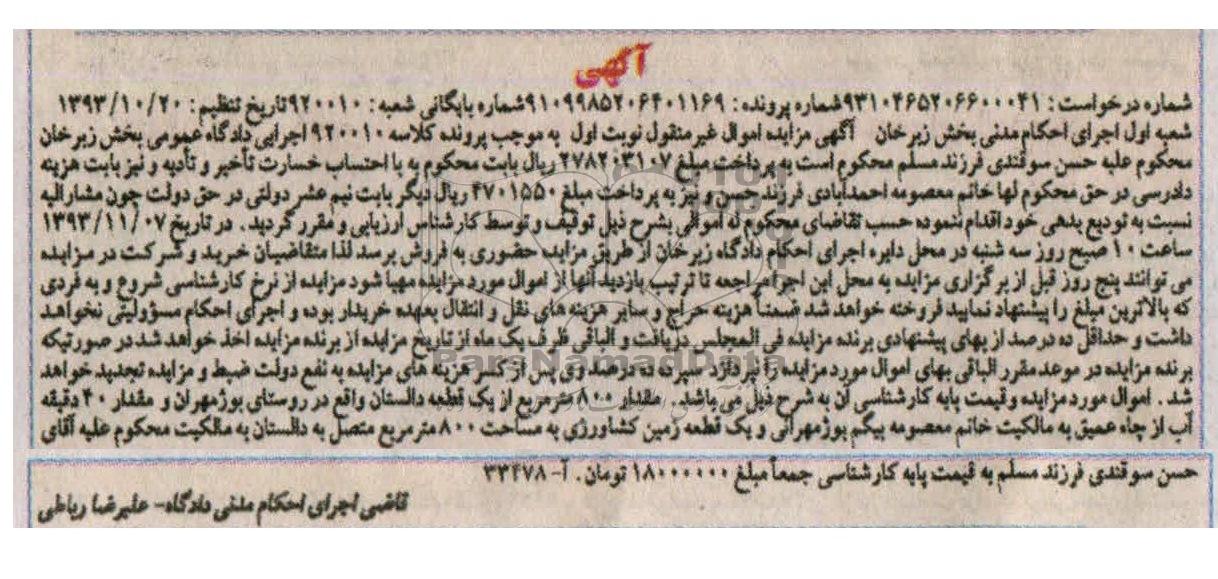 آگهی
شماره درخواست : ۹۳۱۰۴۶۵۲۰۶۶۰۰۰۴۱شماره پرونده : ۹۱۰۹۹۸۵۲۰۶۴۰۱۱۶۹شماره بایگانی شعبه : ۹۲۰۰۱۰تاریخ تنظیم : ۱۳۹۳/۱۰/۲۰
شعبه اول اجرای احکام مدنی بخش زبرخان آگهی مزایده اموال غیر منقول نوبت اول به موجب پرونده کلاسه ۹۲۰۰۱۰ اجرایی دادگاه عمومی بخش زبرخان
محکوم علیه حسن سوقندی فرزند مسلم محکوم است به پرداخت مبلغ ۲۷۸۲۰۳۱۰۷ ریال بابت محکوم به با احتساب خسارت تأخیر و تأدیه و نیز بابت هزینه
دادرسی در حق محکوم لها خانم معصومه احمدآبادی فرزند حسن و نیز به پرداخت مبلغ ۴۷۰۱۵۵۰ ریال دیگر بابت نیم عشر دولتی در حق دولت چون مشارالیه
نسبت به تودیع بدهی خود اقدام ننموده حسب تقاضای محکوم له اموالی بشرح ذیل توقیف و توسط کارشناس ارزیابی و مقرر گردید . در تاریخ ۱۳۹۳/۱۱/۰۷
ساعت ۱۰ صبح روز سه شنبه در محل دایره اجرای احکام دادگاه زبرخان از طریق مزایده حضوری به فروش برسد لذا متقاضیان خرید و شرکت در مزایده
می توانند پنج روز قبل از برگزاری مزایده به محل این اجرا مراجعه تا ترتیب بازدید آنها از اموال مورد مزایده مهیا شود مزایده از نرخ کارشناسی شروع و به فردی
که بالاترین مبلغ را پیشنهاد نمایند فروخته خواهد شد ضمناً هزینه حراج و سایر هزینه های نقل و انتقال بعهده خریدار بوده و اجرای احکام مسؤولیتی نخواهد
داشت و حداقل ده درصد از بهای پیشنهادی برنده مزایده فی المجلس دریافت و الباقی ظرف یک ماه از تاریخ مزایده از برنده مزایده اخذ خواهد شد در صورتیکه
برنده مزایده در موعد مقرر الباقی بهای اموال مورد مزایده را نپردازد سپرده ده درصد وی پس از کسر هزینه های مزایده به نفع دولت ضبط و مزایده تجدید خواهد
شد . اموال مورد مزایده و قیمت پایه کارشناسی آن به شرح ذیل می باشد . مقدار ۸۰۰ مترمربع از یک قطعه دالستان واقع در روستای بوژمهران و مقدار ۴۰ دقیقه
آب از چاه عمیق به مالکیت خانم معصومه بیگم بوژمهرانی و یک قطعه زمین کشاورزی به مساحت ۸۰۰ متر مربع متصل به دالستان به مالکیت محکوم علیه آقای
حسن سوقندی فرزند مسلم به قیمت پایه کارشناسی جمعاً مبلغ ۱۸۰۰۰۰۰۰ تومان . آ- ۳۳۴۷۸
قاضی اجرای احکام مدنی دادگاه- علیرضا رباطی
ParsNamadData